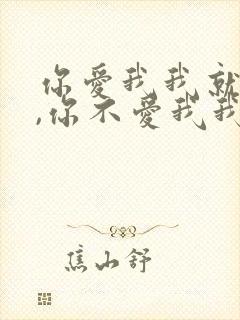 你爱我我就
,你不爱我我
焦山舒